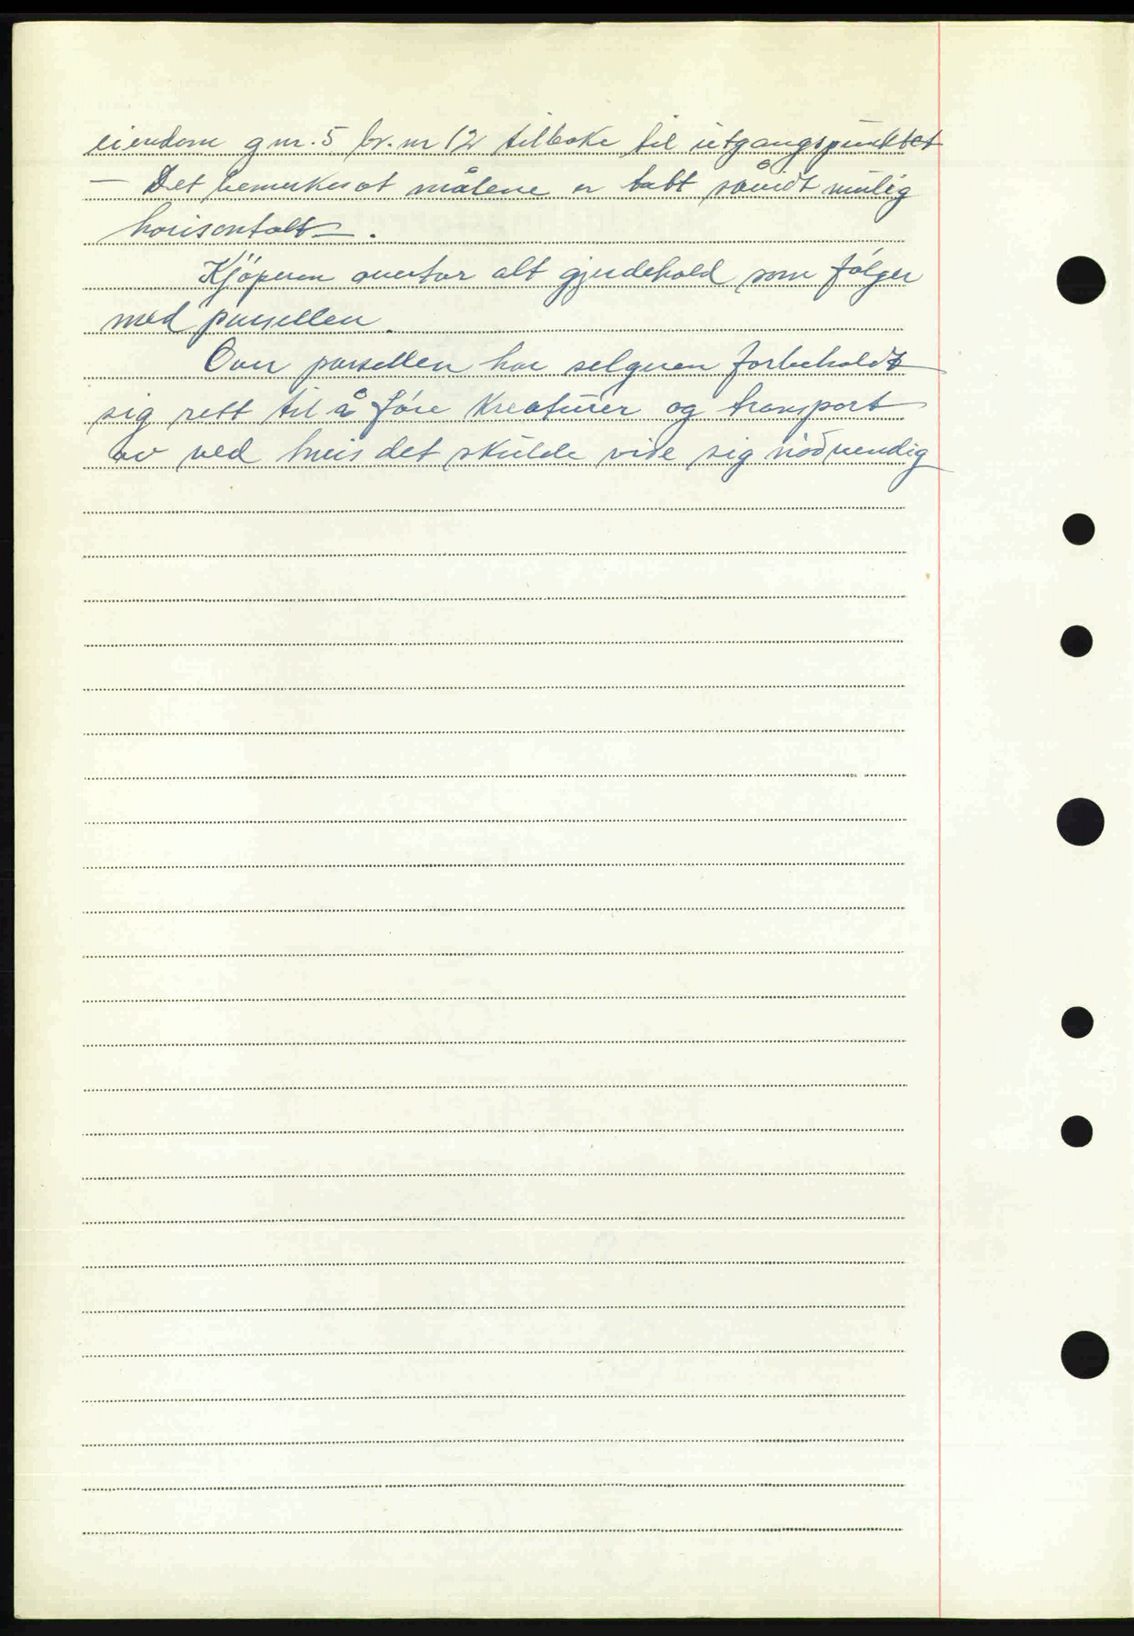 eiendom g.nr. 5 br. nr 12 tilbake til utgangspunktet
— Det bemerkes at målene er tatt såvidt mulig
horisontalt —.
Kjöperen overtar alt gjerdehold som fölger
med parsellen.
Over parsellen har selgeren forbeholdt
sig rett til å före kreaturer og transport
av ved hvis det skulde vise sig nödvendig